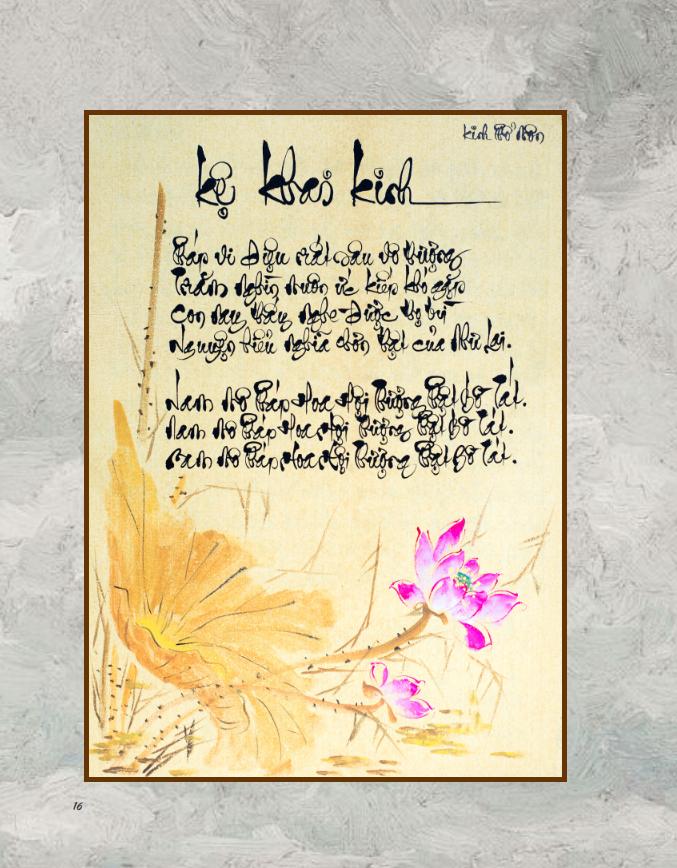 Kinh Phổ Môn
Kệ Khai Kinh
Pháp vi Diệu rất sâu vô Thượng
Trăm nghìn muôn ức kiếp khó gặp
Con nay thấy nghe Được thọ trì
Nguyện hiểu nghĩa chơn thật của Như Lai.
Nam Mô Pháp Hoa Hội Thượng Phật Bồ Tát.
Nam Mô Pháp Hoa Hội Thượng Phật Bồ Tát.
Nam Mô Pháp Hoa Hội Thượng Phật Bồ Tát.
16